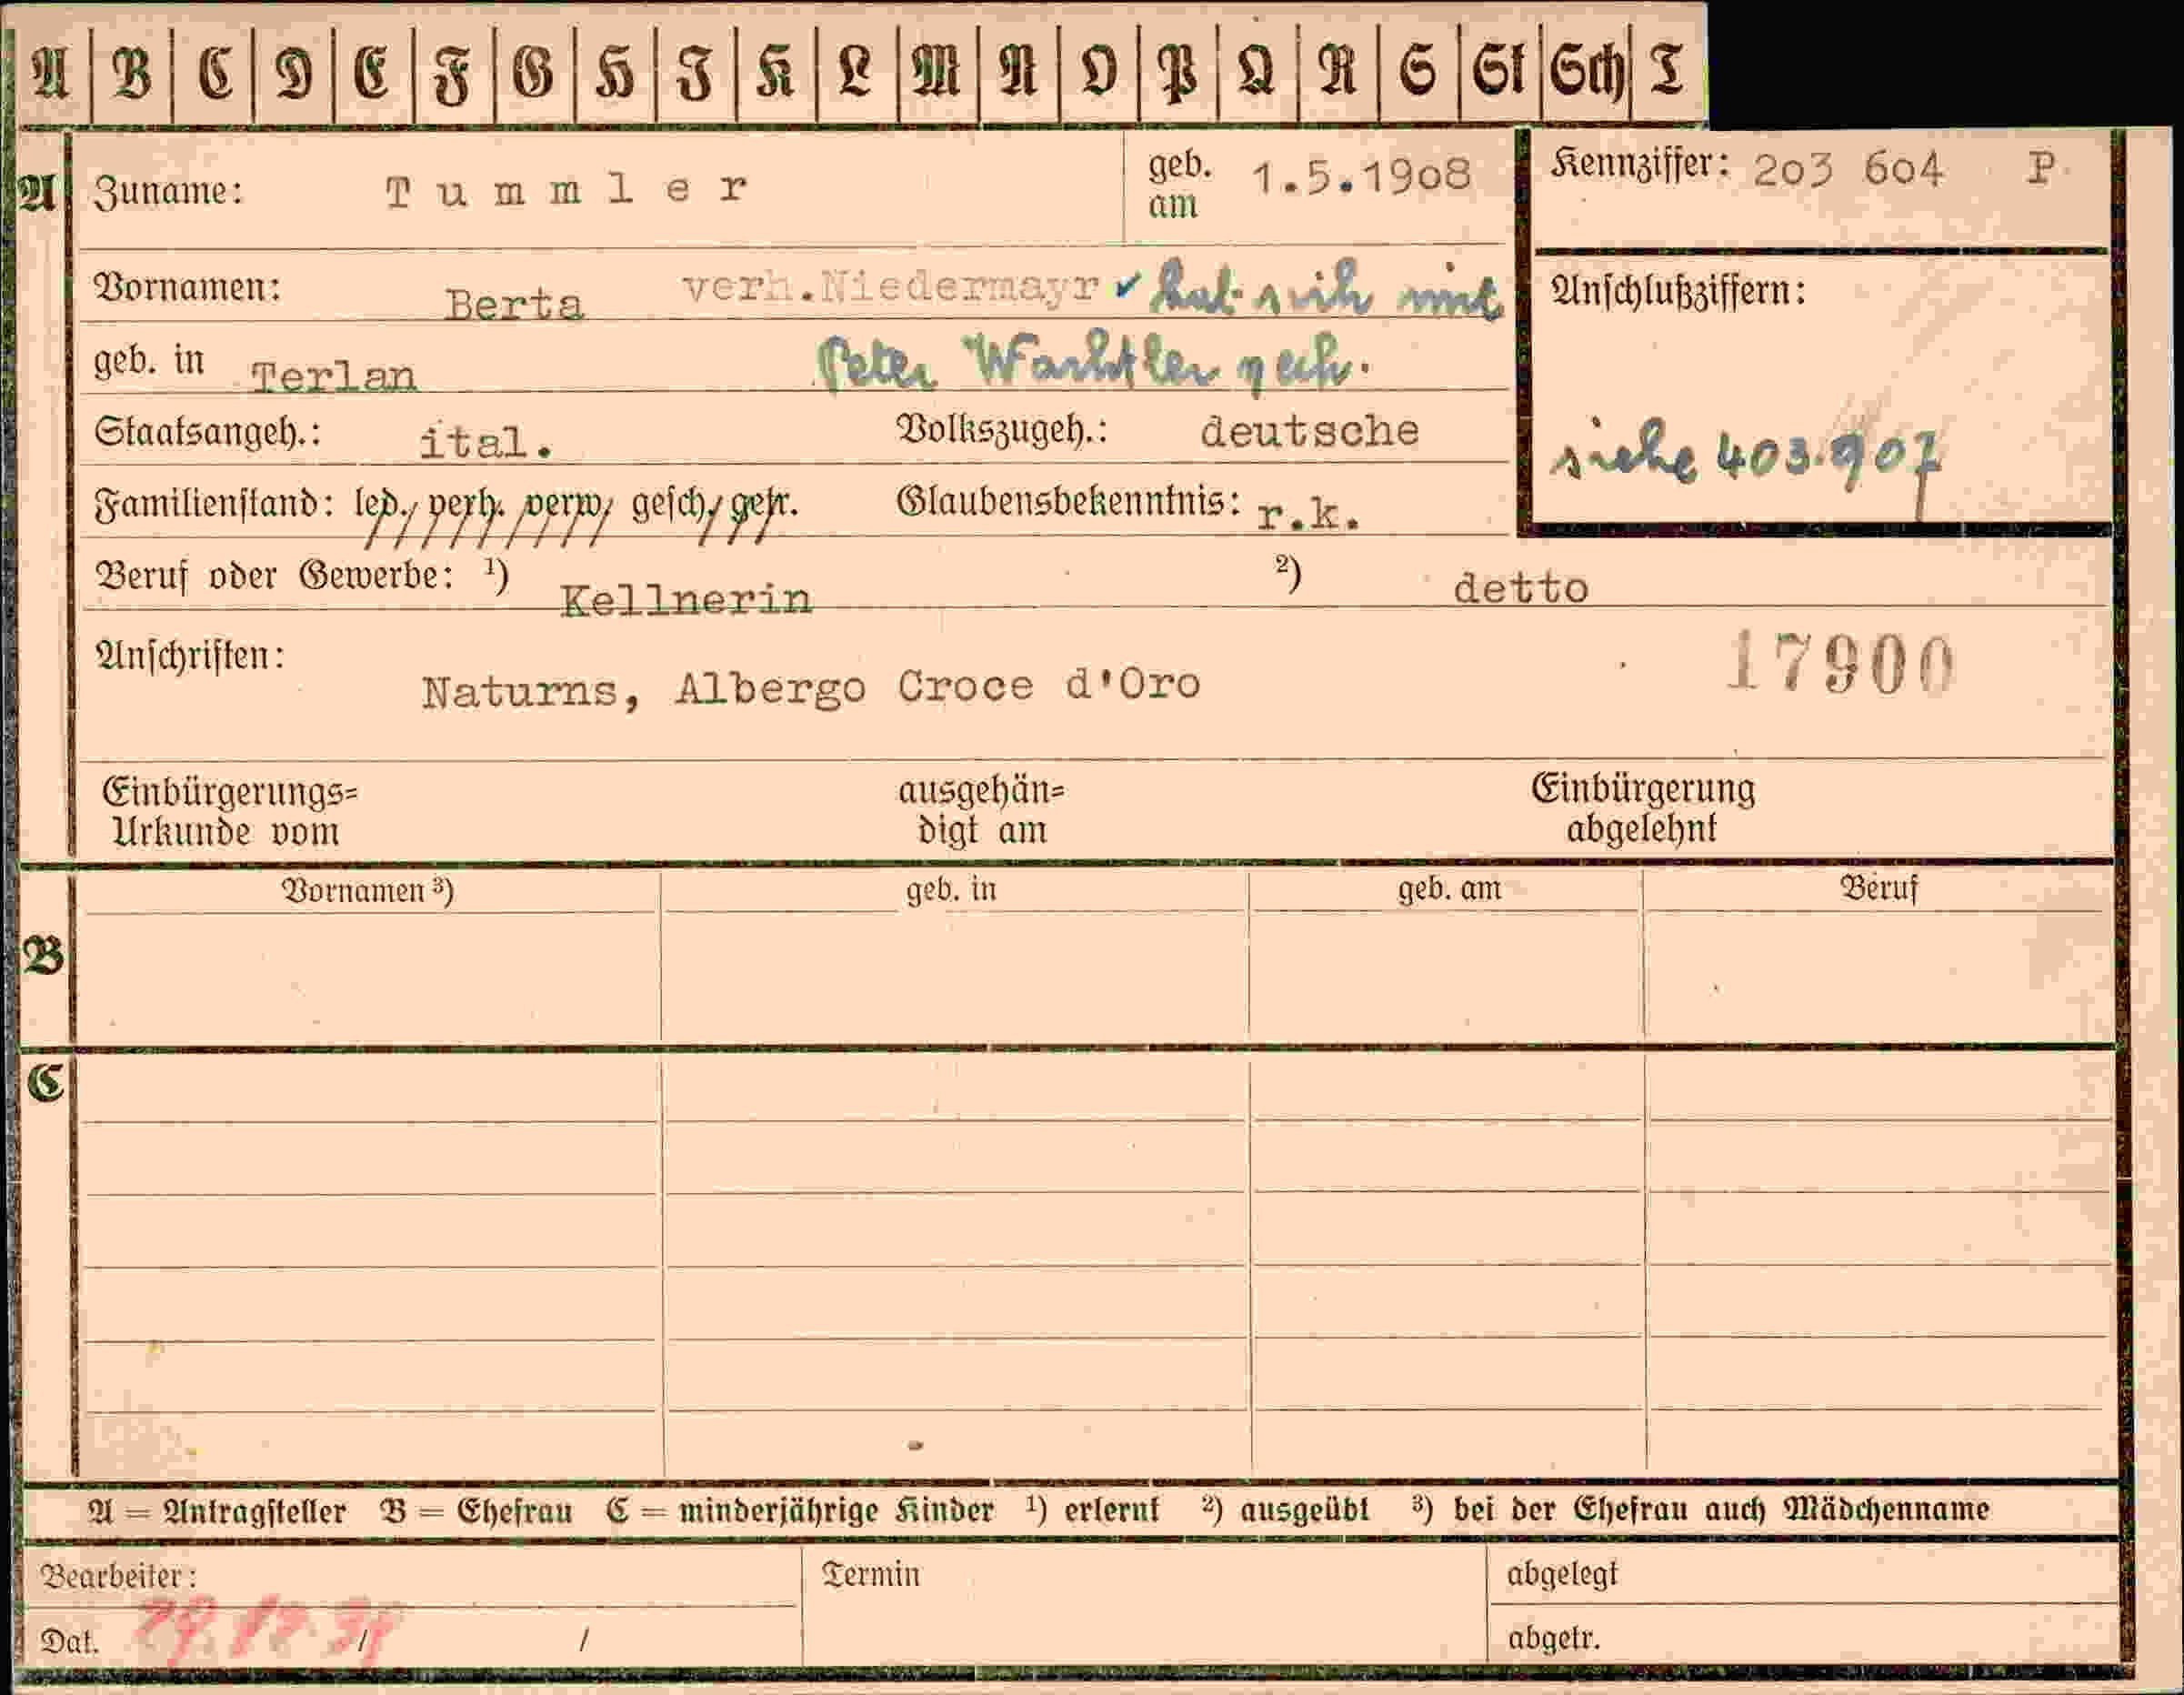 A B C D E F G H I K L M N O P Q R S St Sch T
A Zuname: Tummler geb. am 1.5.1908 Kennziffer: 203 604 P
Vornamen: Berta verh. Niedermayr ✓ hat sich mit Anschlußziffern:
geb. in Terlan Peter Wachtler
Staatsangeh.: ital. Volkszugeh.: deutsche siehe 403.907
Familienstand: led., verh. verw, gesch, getr. Glaubensbekenntnis: r.k.
Beruf oder Gewerbe: ¹) Kellnerin ²) detto
Anschriften: 17900
Naturns, Albergo Croce d'Oro
Einbürgerungs= ausgehän= Einbürgerung
Urkunde vom digt am abgelehnt
Vornamen ³) geb. in geb. am Beruf
B
C
A = Antragsteller B = Ehefrau C = minderjährige Kinder ¹) erlernt ²) ausgeübt ³) bei der Ehefrau auch Mädchenname
Bearbeiter: Termin abgelegt
Dat. / / abgetr.